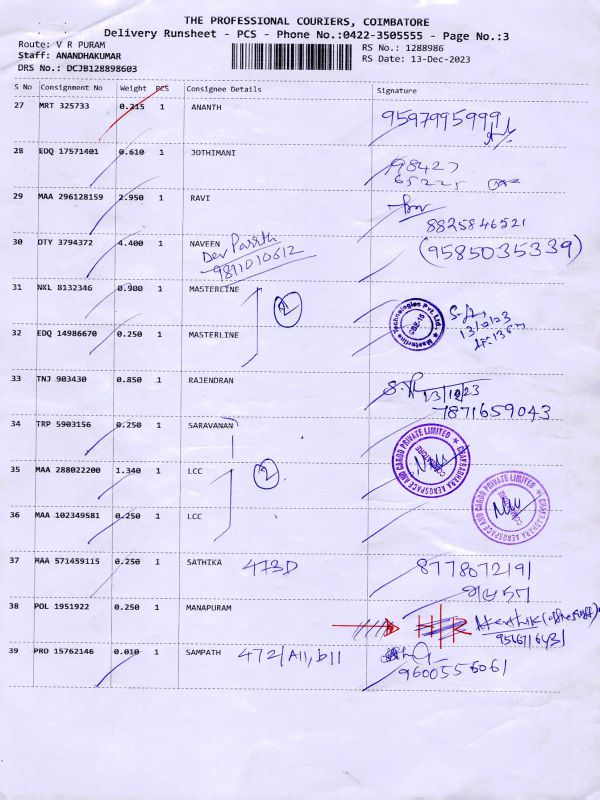 THE PROFESSIONAL COURIERS, COIMBATORE
Delivery Runsheet - PCS - Phone No.:0422-3505555 - Page No.:3
Route: V R PURAM
Staff: ANANDHAKUMAR
DRS No.: DCJB128898603
RS No.: 1288986
RS Date: 13-Dec-2023
S No Consignment No Weight PCS Consignee Details Signature
27 MRT 325733 0.215 1 ANANTH 9597995999
28 EDQ 17571401 0.610 1 JOTHIMANI 98427
65225
29 MAA 296128159 2.950 1 RAVI
8825846521
30 OTY 3794372 4.400 1 NAVEEN (9585035339)
Dev
9811010612
31 NKL 8132346 0.900 1 MASTERLINE
2
Masterline Technologies Pvt. Ltd.
CBE-15
13/12/23
32 EDQ 14986670 0.250 1 MASTERLINE
33 TNJ 903430 0.850 1 RAJENDRAN 13/12/23
7871659043
34 TRP 5903156 0.250 1 SARAVANAN
CHAKRADHARA AEROSPACE AND CARGO PRIVATE LIMITED
35 MAA 288022200 1.340 1 LCC 2
CHAKRADHARA AEROSPACE AND CARGO PRIVATE LIMITED
36 MAA 102349581 0.250 1 LCC
37 MAA 571459115 0.250 1 SATHIKA 473D 8778072191
38 POL 1951922 0.250 1 MANAPURAM
39 PRO 15762146 0.010 1 SAMPATH 472/A11, b11
9600556061